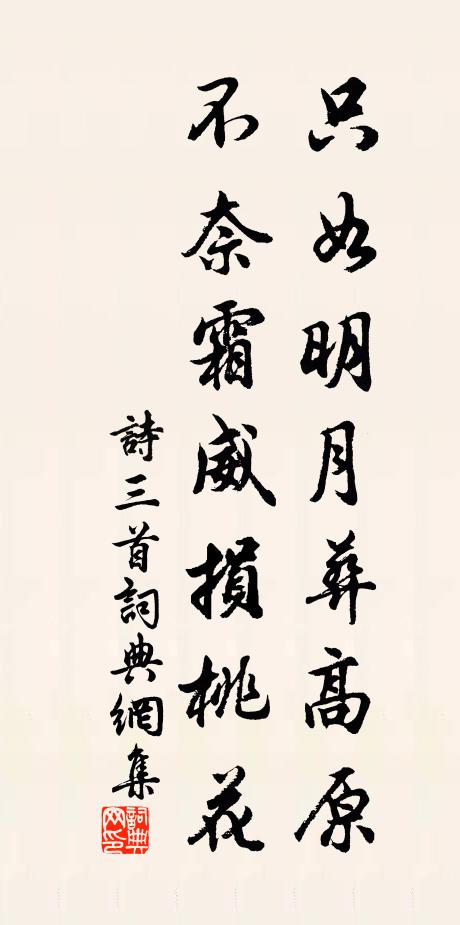 只如明月葬高原
不奈霜威損桃花
詩三首詞典網集
詞典网印